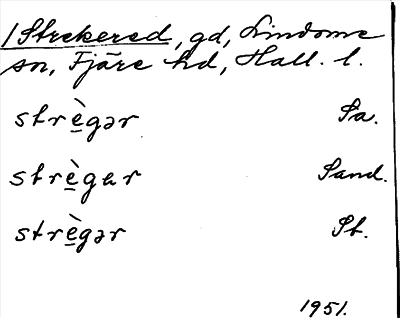 /Strekered, gd, Lindome
sn, Fjäre hd, Hall. l.
strè̱gər Sa.
strè̱gər Sand.
strè̱gər St.
1951.